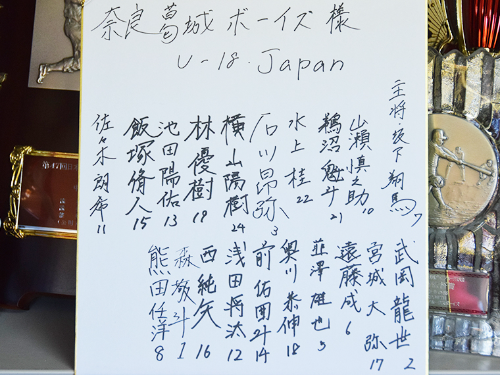 奈良葛城ボーイズ様
U-18. Japan
主将・坂下翔馬 7
山瀬慎之助 10
鵜沼魁斗 21
水上桂 22
石川昂弥 3
横山陽樹 24
林優樹 19
池田陽佑 13
飯塚脩人 15
佐々木朗希 11
武岡龍世 2
宮城大弥 17
遠藤成 6
韮澤雄也 5
奥川恭伸 18
前佑囲斗 14
浅田将汰 12
西純矢 16
森敬斗 1
熊田任洋 8